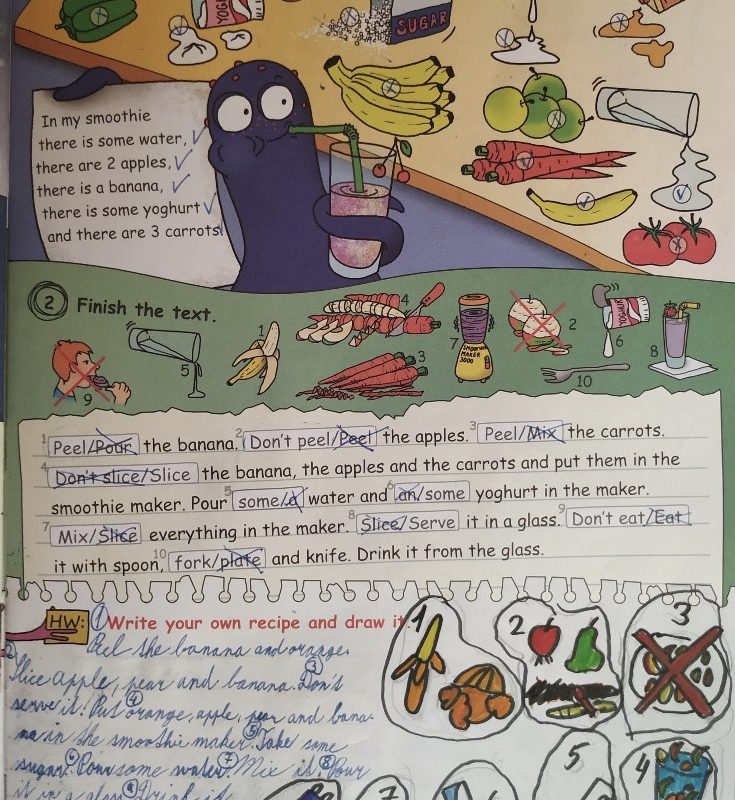 YOGH
SUGAR
In my smoothie
there is some water,
there are 2 apples,
there is a banana,
there is some yoghurt
and there are 3 carrots
2 Finish the text.
4
1
2
YOGHUR
5
3
7
6
8
9
10
1 Peel/Pour the banana. 2 Don't peel/Peel the apples. 3 Peel/Mix the carrots.
4 Don't slice/Slice the banana, the apples and the carrots and put them in the
smoothie maker. Pour 5 some/a water and 6 an/some yoghurt in the maker.
7 Mix/Slice everything in the maker. 8 Slice/Serve it in a glass. 9 Don't eat/Eat
it with spoon, 10 fork/plate and knife. Drink it from the glass.
HW: 1 Write your own recipe and draw it
Peel the banana and orange.
2 Slice apple, pear and banana. 3 Don't
serve it. 4 Put orange, apple, pear and bana-
na in the smoothie maker. 5 Take some
sugar. 6 Pour some water. 7 Mix it. 8 Pour
it in a glass. Drink it
1
2
3
5
4
7